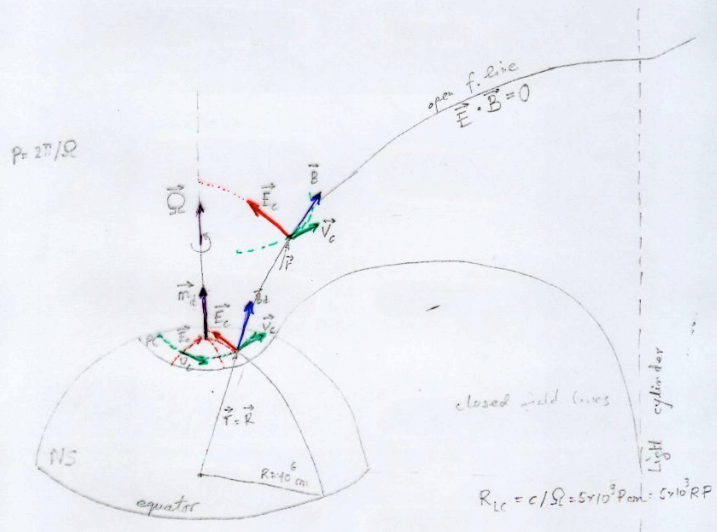 open f. line
E⃗ · B⃗ = 0
P = 2π/Ω
B⃗
E⃗c
V⃗c
Ω⃗
r⃗
m⃗d
E⃗c
B⃗d
V⃗c
PC
E⃗c
Vc
closed field lines
Light cylinder
r⃗ = R⃗
NS
R=10⁶ cm
equator
R_LC = c/Ω = 5×10⁹ P cm = 5×10³ RP